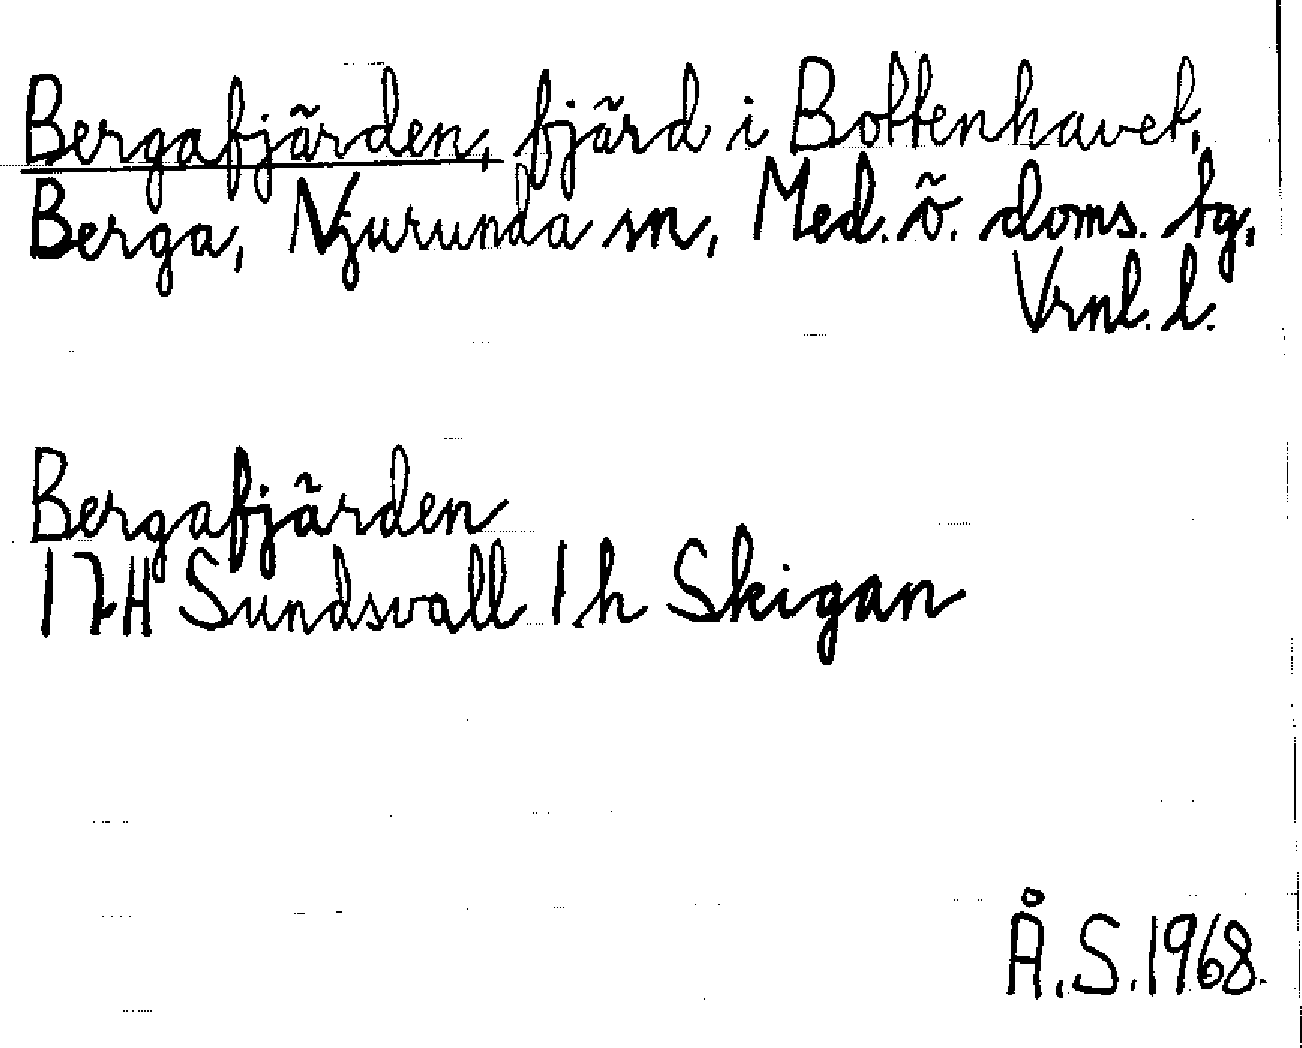 Bergafjärden, fjärd i Bottenhavet,
Berga, Njurunda sn, Med. ö. doms. tg,
Vrnl. l.
Bergafjärden
17H Sundsvall 1 h Skigan
Å.S. 1968.